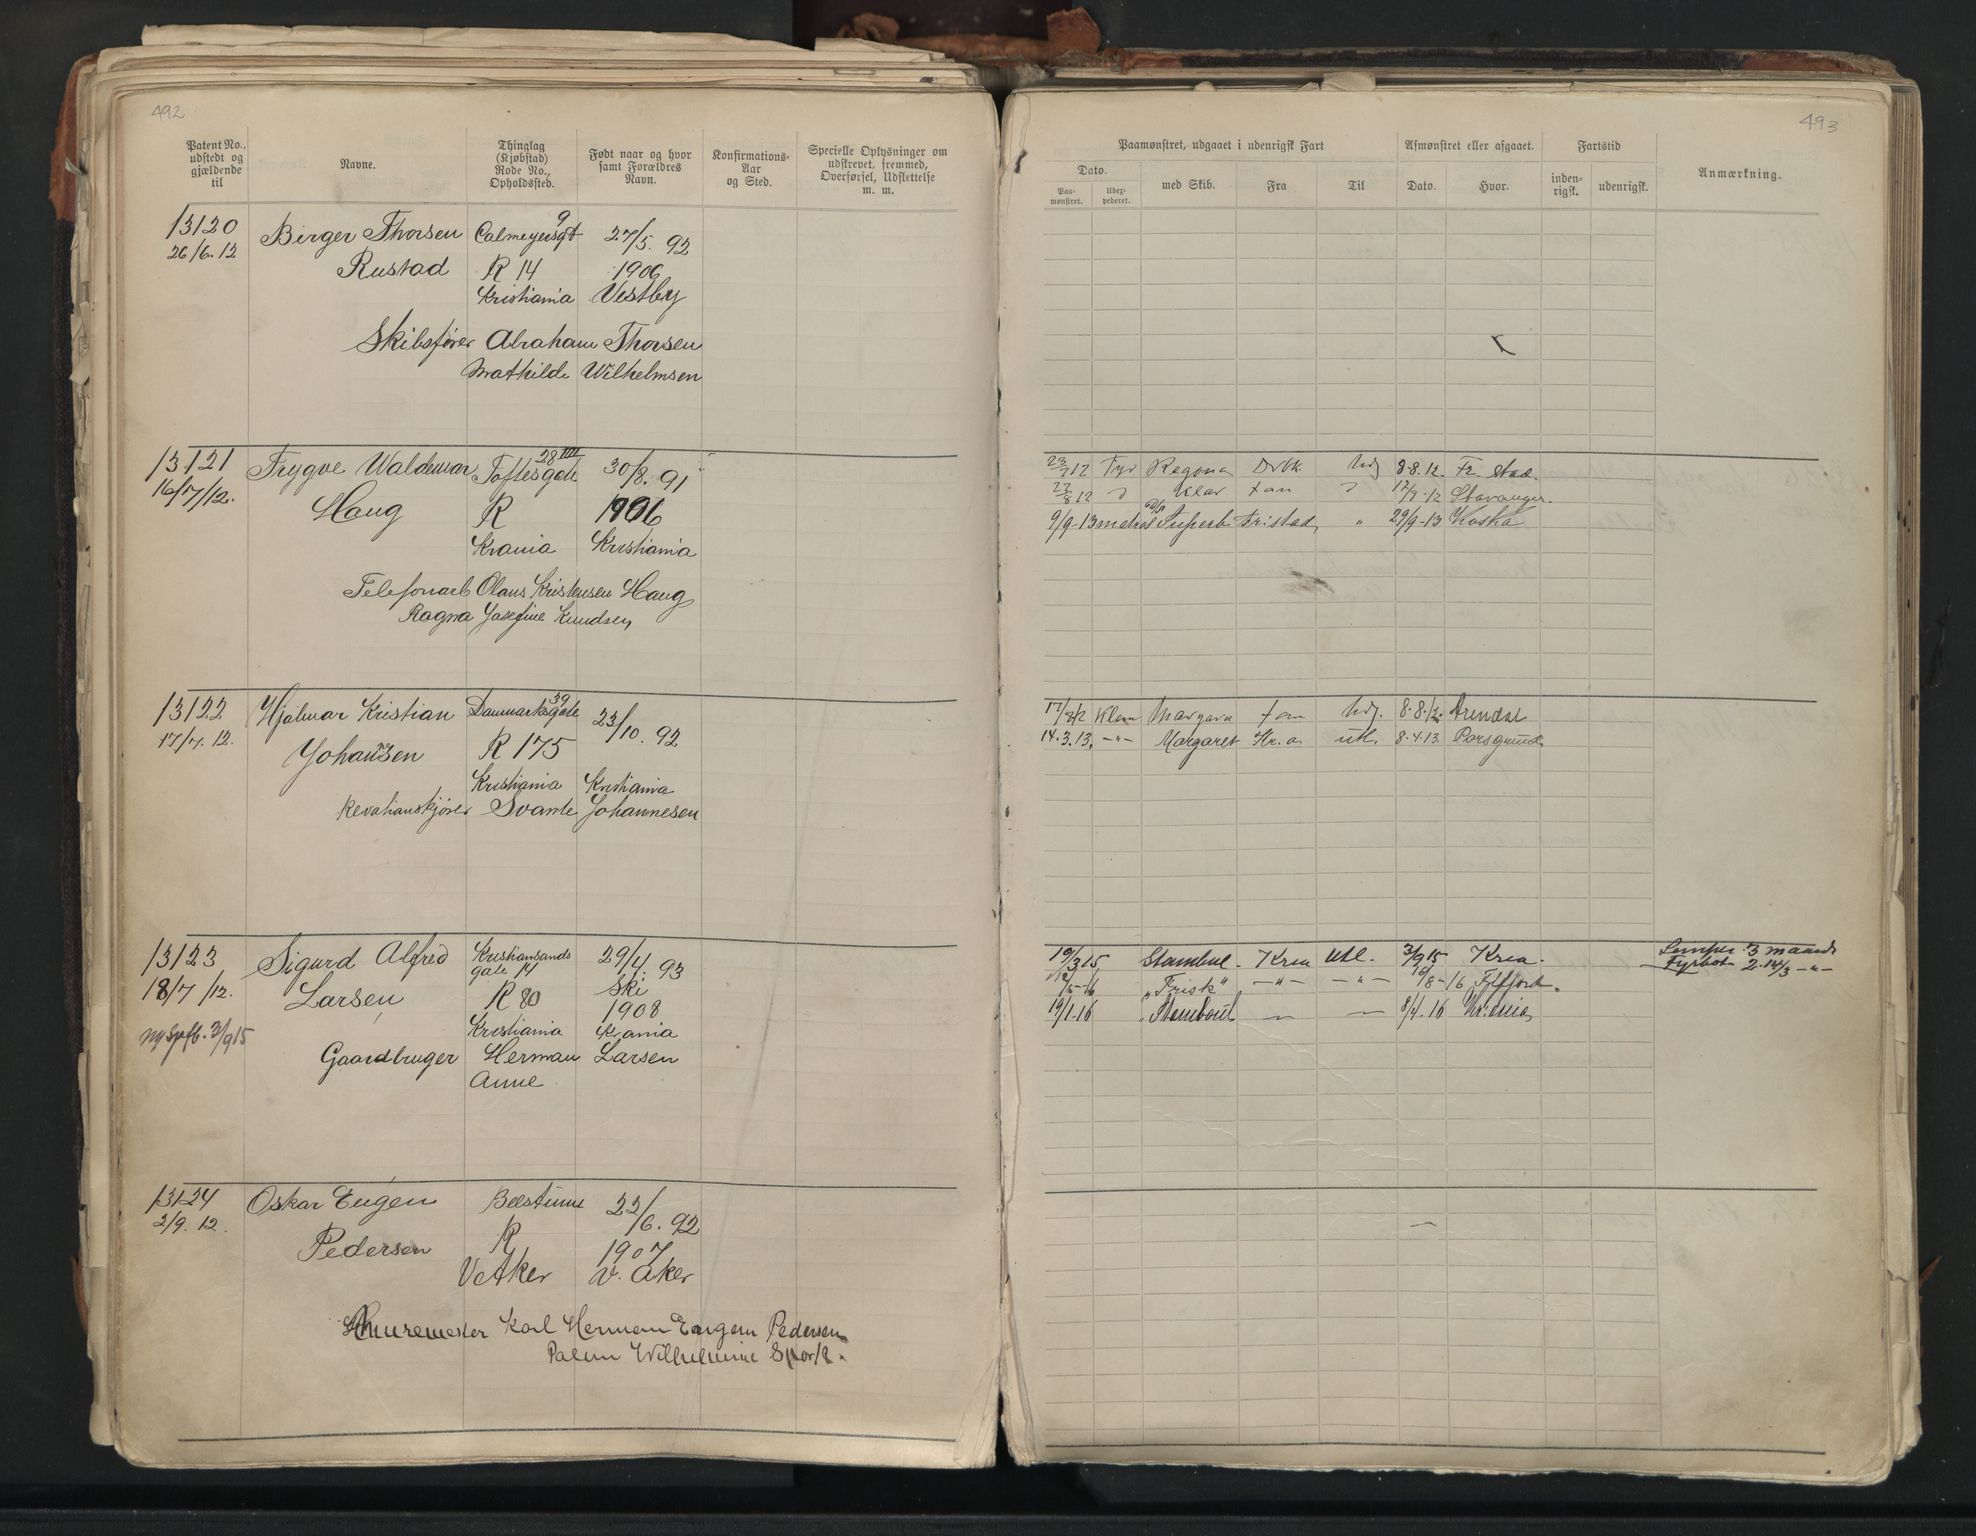 492
Patent No., udstedt og gjældende til
Navne.
Thinglag (Kjøbstad) Rode No., Opholdssted.
Født naar og hvor samt Forældres Navn.
Konfirmations-Aar og Sted.
Specielle Oplysninger om udskrevet, fremmed, Overførsel, Udslettelse m. m.
13120 Birger Thorsen Calmeyersgt 9 27/5. 92
26/6. 12 Rustad R 14 1906
Kristiania Vestby
Skibsfører Abraham Thorsen
Mathilde Wilhelmsen
13121 Trygve Waldemar Toftesgate 28 III 30/8. 91
16/7/12. Haug R 1906
Krania Kristiania
Telefonarb Olaus Kristensen Haug
Ragna Josefine Knudsen
13122 Hjalmar Kristian Danmarksgate 39 23/10. 92
17/7. 12. Johansen R 175
Kristiania Kristiania
Svante Johannesen
13123 Sigurd Alfred Kristiansands gate 14 29/4. 93
18/7/12. Larsen R 80 Ski 1908
3/9 15 Kristiania Krania
Gaardbruger Herman Larsen
Anne
13124 Oskar Eugen 22/6. 92
2/9. 12. Pedersen R 1907
V Aker V. Aker
Muremester Karl Herman Eugen Pedersen
Wilhelmine
493
Paamønstret, udgaaet i udenrigsk Fart
Afmønstret eller afgaaet.
Fartstid
Anmærkning.
Dato.
Paa-mønstret.
Udex-pederet.
med Skib.
Fra
Til
Dato.
Hvor.
inden-rigsk.
udenrigsk.
23/7 12 Fyr Regona Drbk Udj 8.8.12. Fr.stad.
27/8 12 " Klar Fan " 17/9-12 Stavanger.
9/9-13 matros Superb Fr.stad " 29/9-13
17/7 12 Margara Fan Udj. 8.8.12. Arendal
14.3.13. -"- Margaret Kr.a. utl. 8.4.13 Porsgrund
19/3 15 Stambul. Kria Utl. 3/9 15 Kria. 3 maaned
"Frisk" -"- -"- /8-16 Fyrbøt. 2. 14/3 -"-
19/1-16 "Stamboul — — 8/4-16 Kr:ania